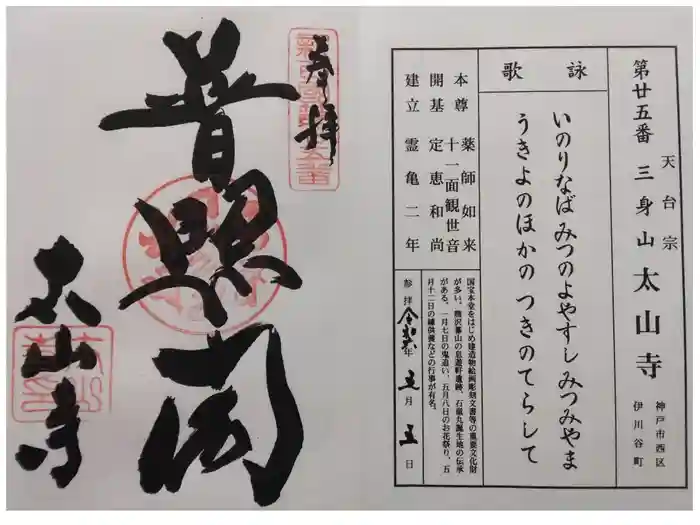 天台宗
第廿五番 三身山 太山寺
神戸市西区
伊川谷町
詠歌
いのりなば みつのよやすし みつみやま
うきよのほかの つきのてらして
本尊 薬師如来
十一面観世音
開基 定恵和尚
建立 霊亀二年
国宝本堂をはじめ建造物絵画彫刻文書等の重要文化財
がある。一月七日の鬼追い、五月八日のお花祭り、五
月十二日の練供養などの行事が有名。
参拝 年 五月 五日
奉拝
普照閣
太山寺